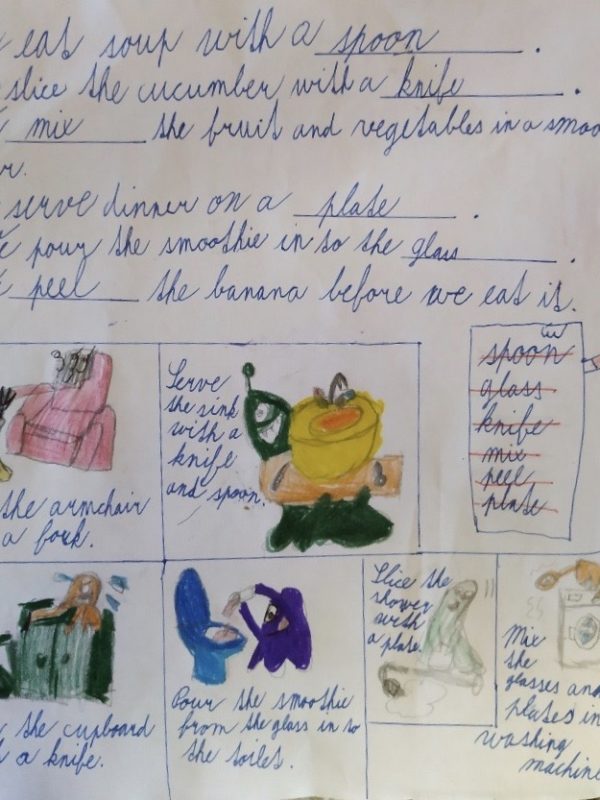 eat soup with a spoon.
slice the cucumber with a knife.
mix the fruit and vegetables in a smoo
r.
serve dinner on a plate.
pour the smoothie in to the glass.
peel the banana before we eat it.
spoon
glass
knife
mix
peel
plate
Serve
the sink
with a
knife
and spoon.
the armchair
a fork.
the cupboard
a knife.
Pour the smoothie
from the glass in to
the toilet.
Slice the
shower
with
a plate.
Mix
the
glasses and
plates in
washing
machine